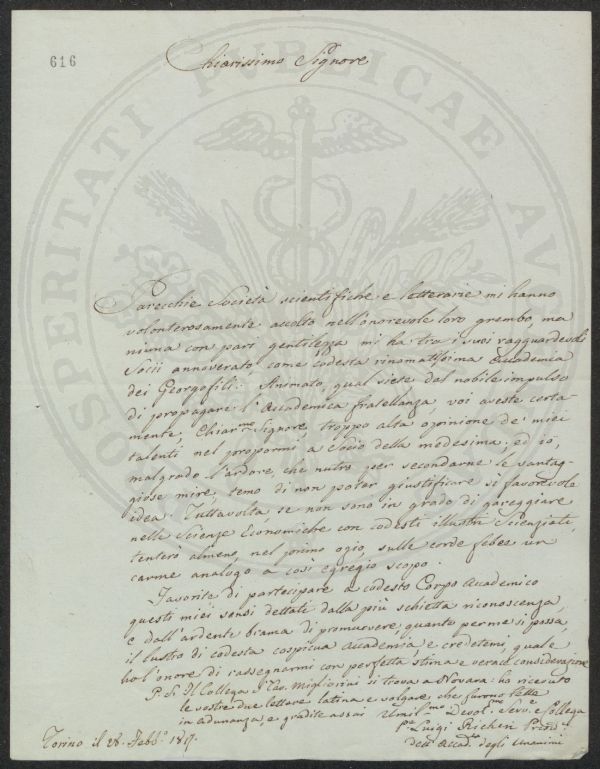 616
Chiarissimo Signore
PROSPERITATI PUBLICAE AUGENDAE
Parecchie Società scientifiche e letterarie mi hanno
volonterosamente accolto nell'onorevole loro grembo, ma
niuna con pari gentilezza mi ha tra i suoi ragguardevoli
Socii annoverato come codesta rinomatissima Accademia
dei Georgofili. Animato, qual siete dal nobile impulso
di propagare l'Accademica fratellanza, voi aveste certa-
mente, Chiar.mo Signore, troppo alta opinione de' miei
talenti nel propormi a Socio della medesima, ed io,
malgrado l'ardore, che nutro per secondarne le vantag-
giose mire, temo di non poter giustificare sì favorevole
idea. Tuttavolta, se non sono in grado di gareggiare
nelle Scienze Economiche con codesti illustri Scienziati,
tenterò almeno, nel primo ozio, sulle corde febee un
carme analogo a così egregio scopo.
Favorite di partecipare a codesto Corpo Accademico
questi miei sensi dettati dalla più schietta riconoscenza,
e dall'ardente brama di promuovere quanto per me si possa,
il lustro di codesta cospicua Accademia e credetemi, quale
ho l'onore di rassegnarmi con perfetta stima e verace considerazione
P.S. Il Collega Cav. Migliorini si trova a Novara: ho ricevuto
le vostre due lettere latina e volgare, che furono lette
in adunanza, e gradite assai
Umil.mo Devot.mo Serv. e Collega
Luigi Richeri Presid.
dell'Accad.a degli Unanimi
Torino il 28. Febb.o